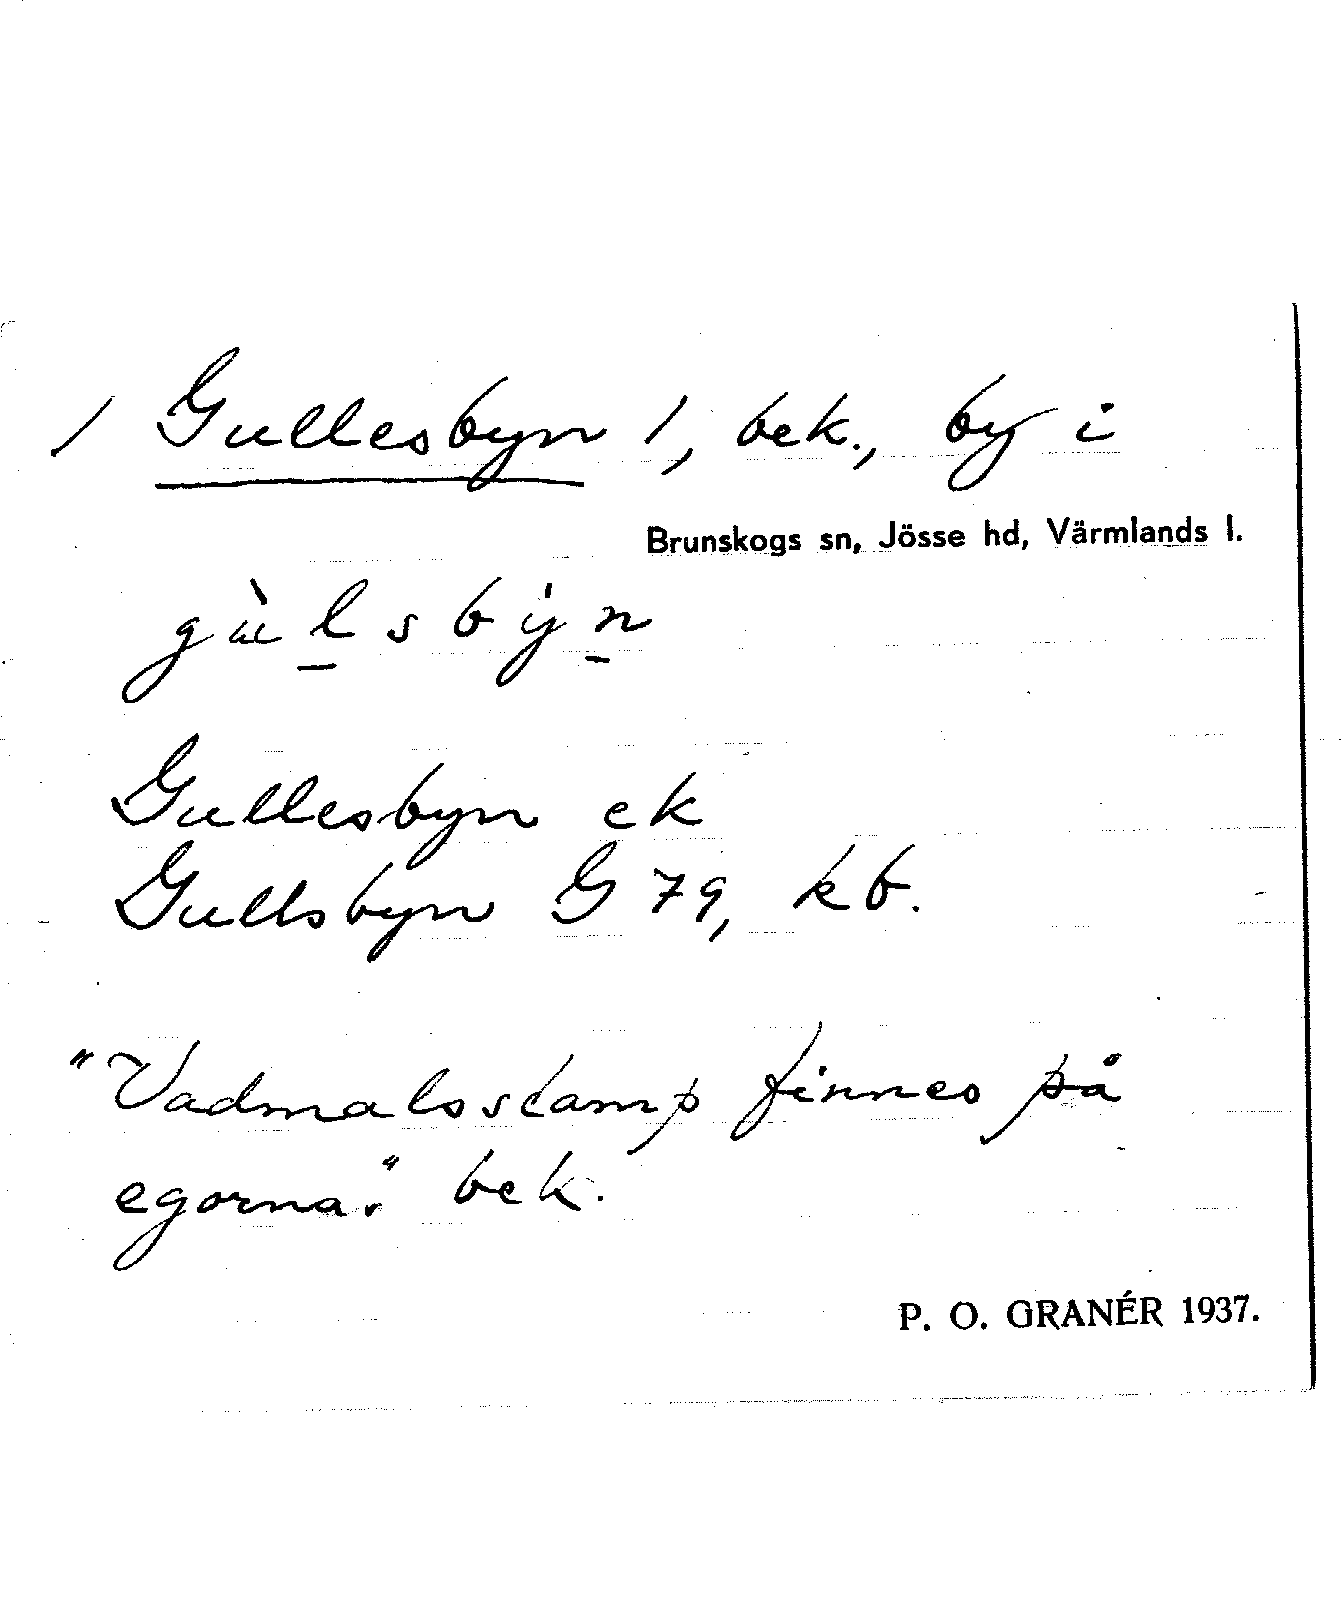 / Gullesbyn 1, bek., by i
Brunskogs sn, Jösse hd, Värmlands l.
gùlsbýn
Gullesbyn ek
Gullsbyn G 79, kb.
"Vadmalsstamp finnes på
egorna." bek.
P. O. GRANÉR 1937.